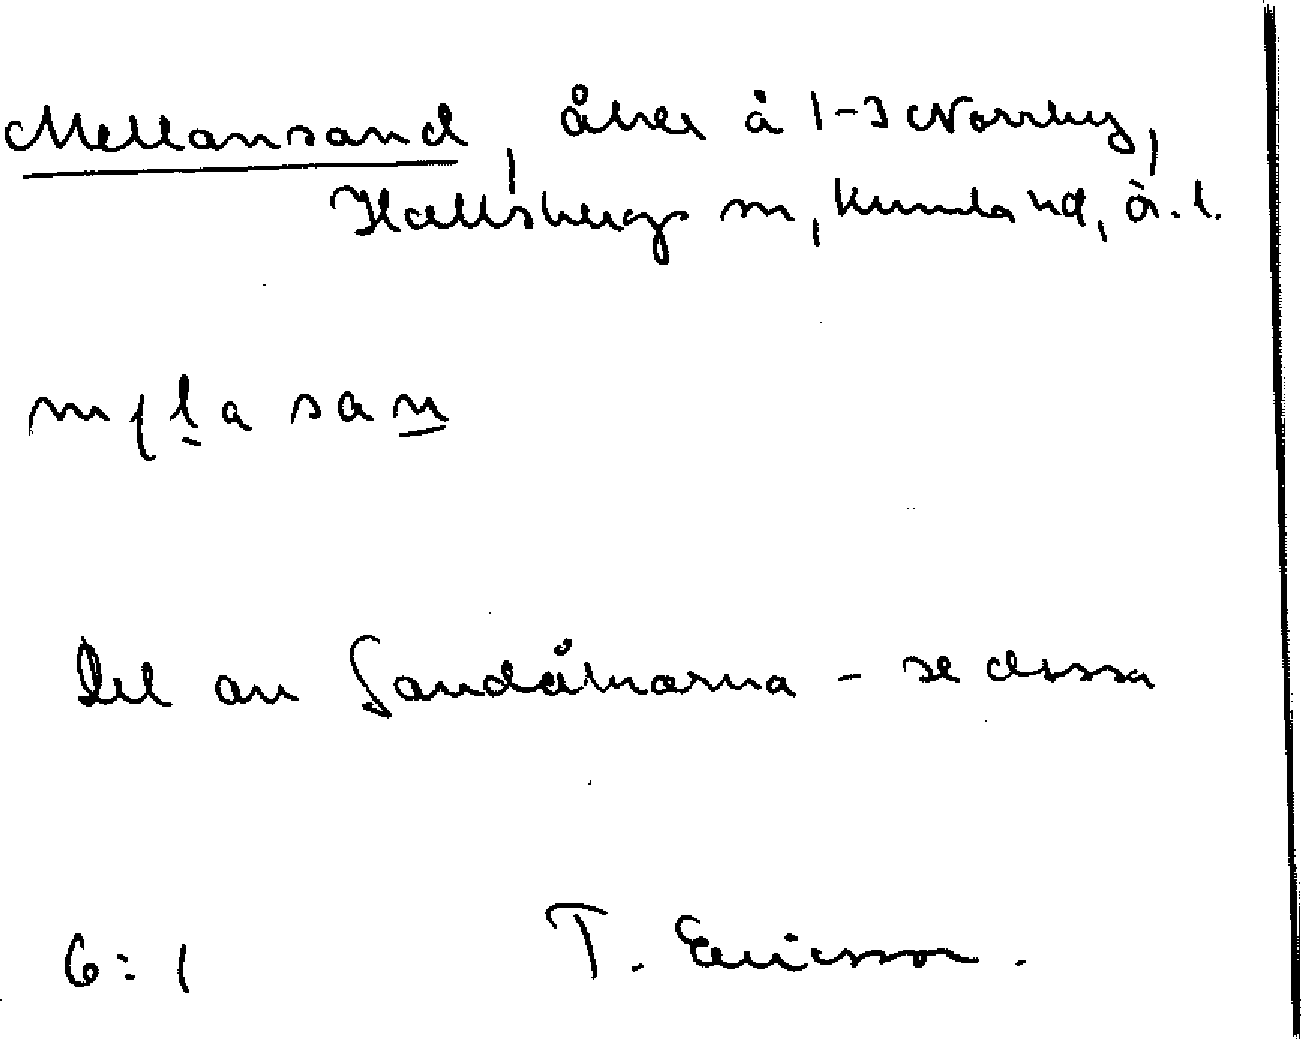 Mellansand, åker å 1-3 Norrby,
Hallsbergs sn, Kumla hd, ö.l.
sa
Del av Sandåkrarna - se dessa
6:1 T. Ericsson.